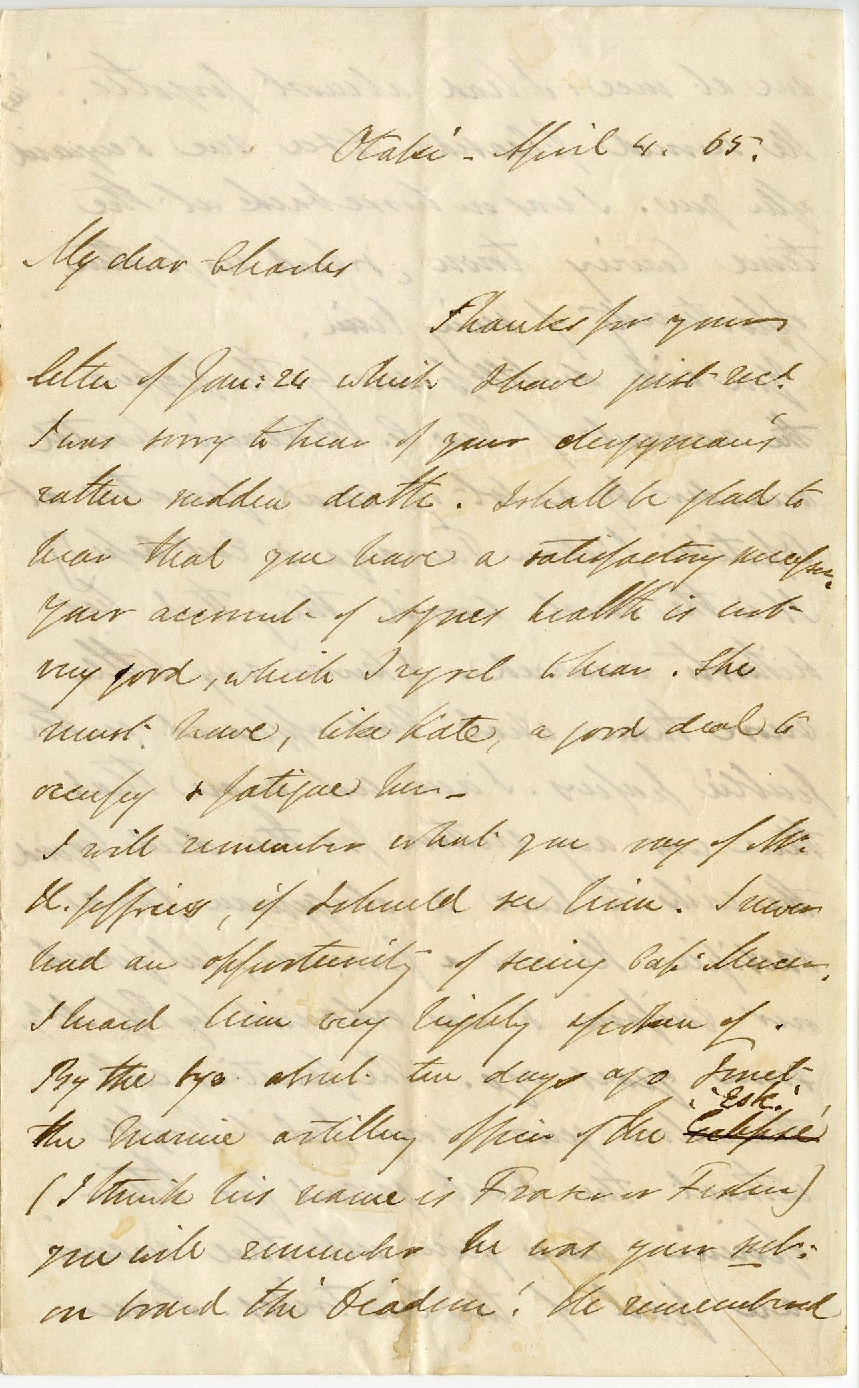 Otaki - April 4. 65.
My dear Charles
Thanks for your
letter of Jan: 24 which I have just recd.
I was sorry to hear of your clergyman's
rather sudden death. I shall be glad to
hear that you have a satisfactory successor.
Your account of Agnes health is not
very good, which I regret to hear. She
must have, like Kate, a good deal to
occupy & fatigue her -
I will remember what you say of Mr.
H. Jeffries, if I should see him. I never
had an opportunity of seeing Capt Mercer.
I heard him very highly spoken of.
By the bye about ten days ago I met
'Esk.'
the Marine artillery officer of the 'Eclipse'
(I think his name is Fraser or )
you will remember he was your
on board the 'Diadem'! He remembered